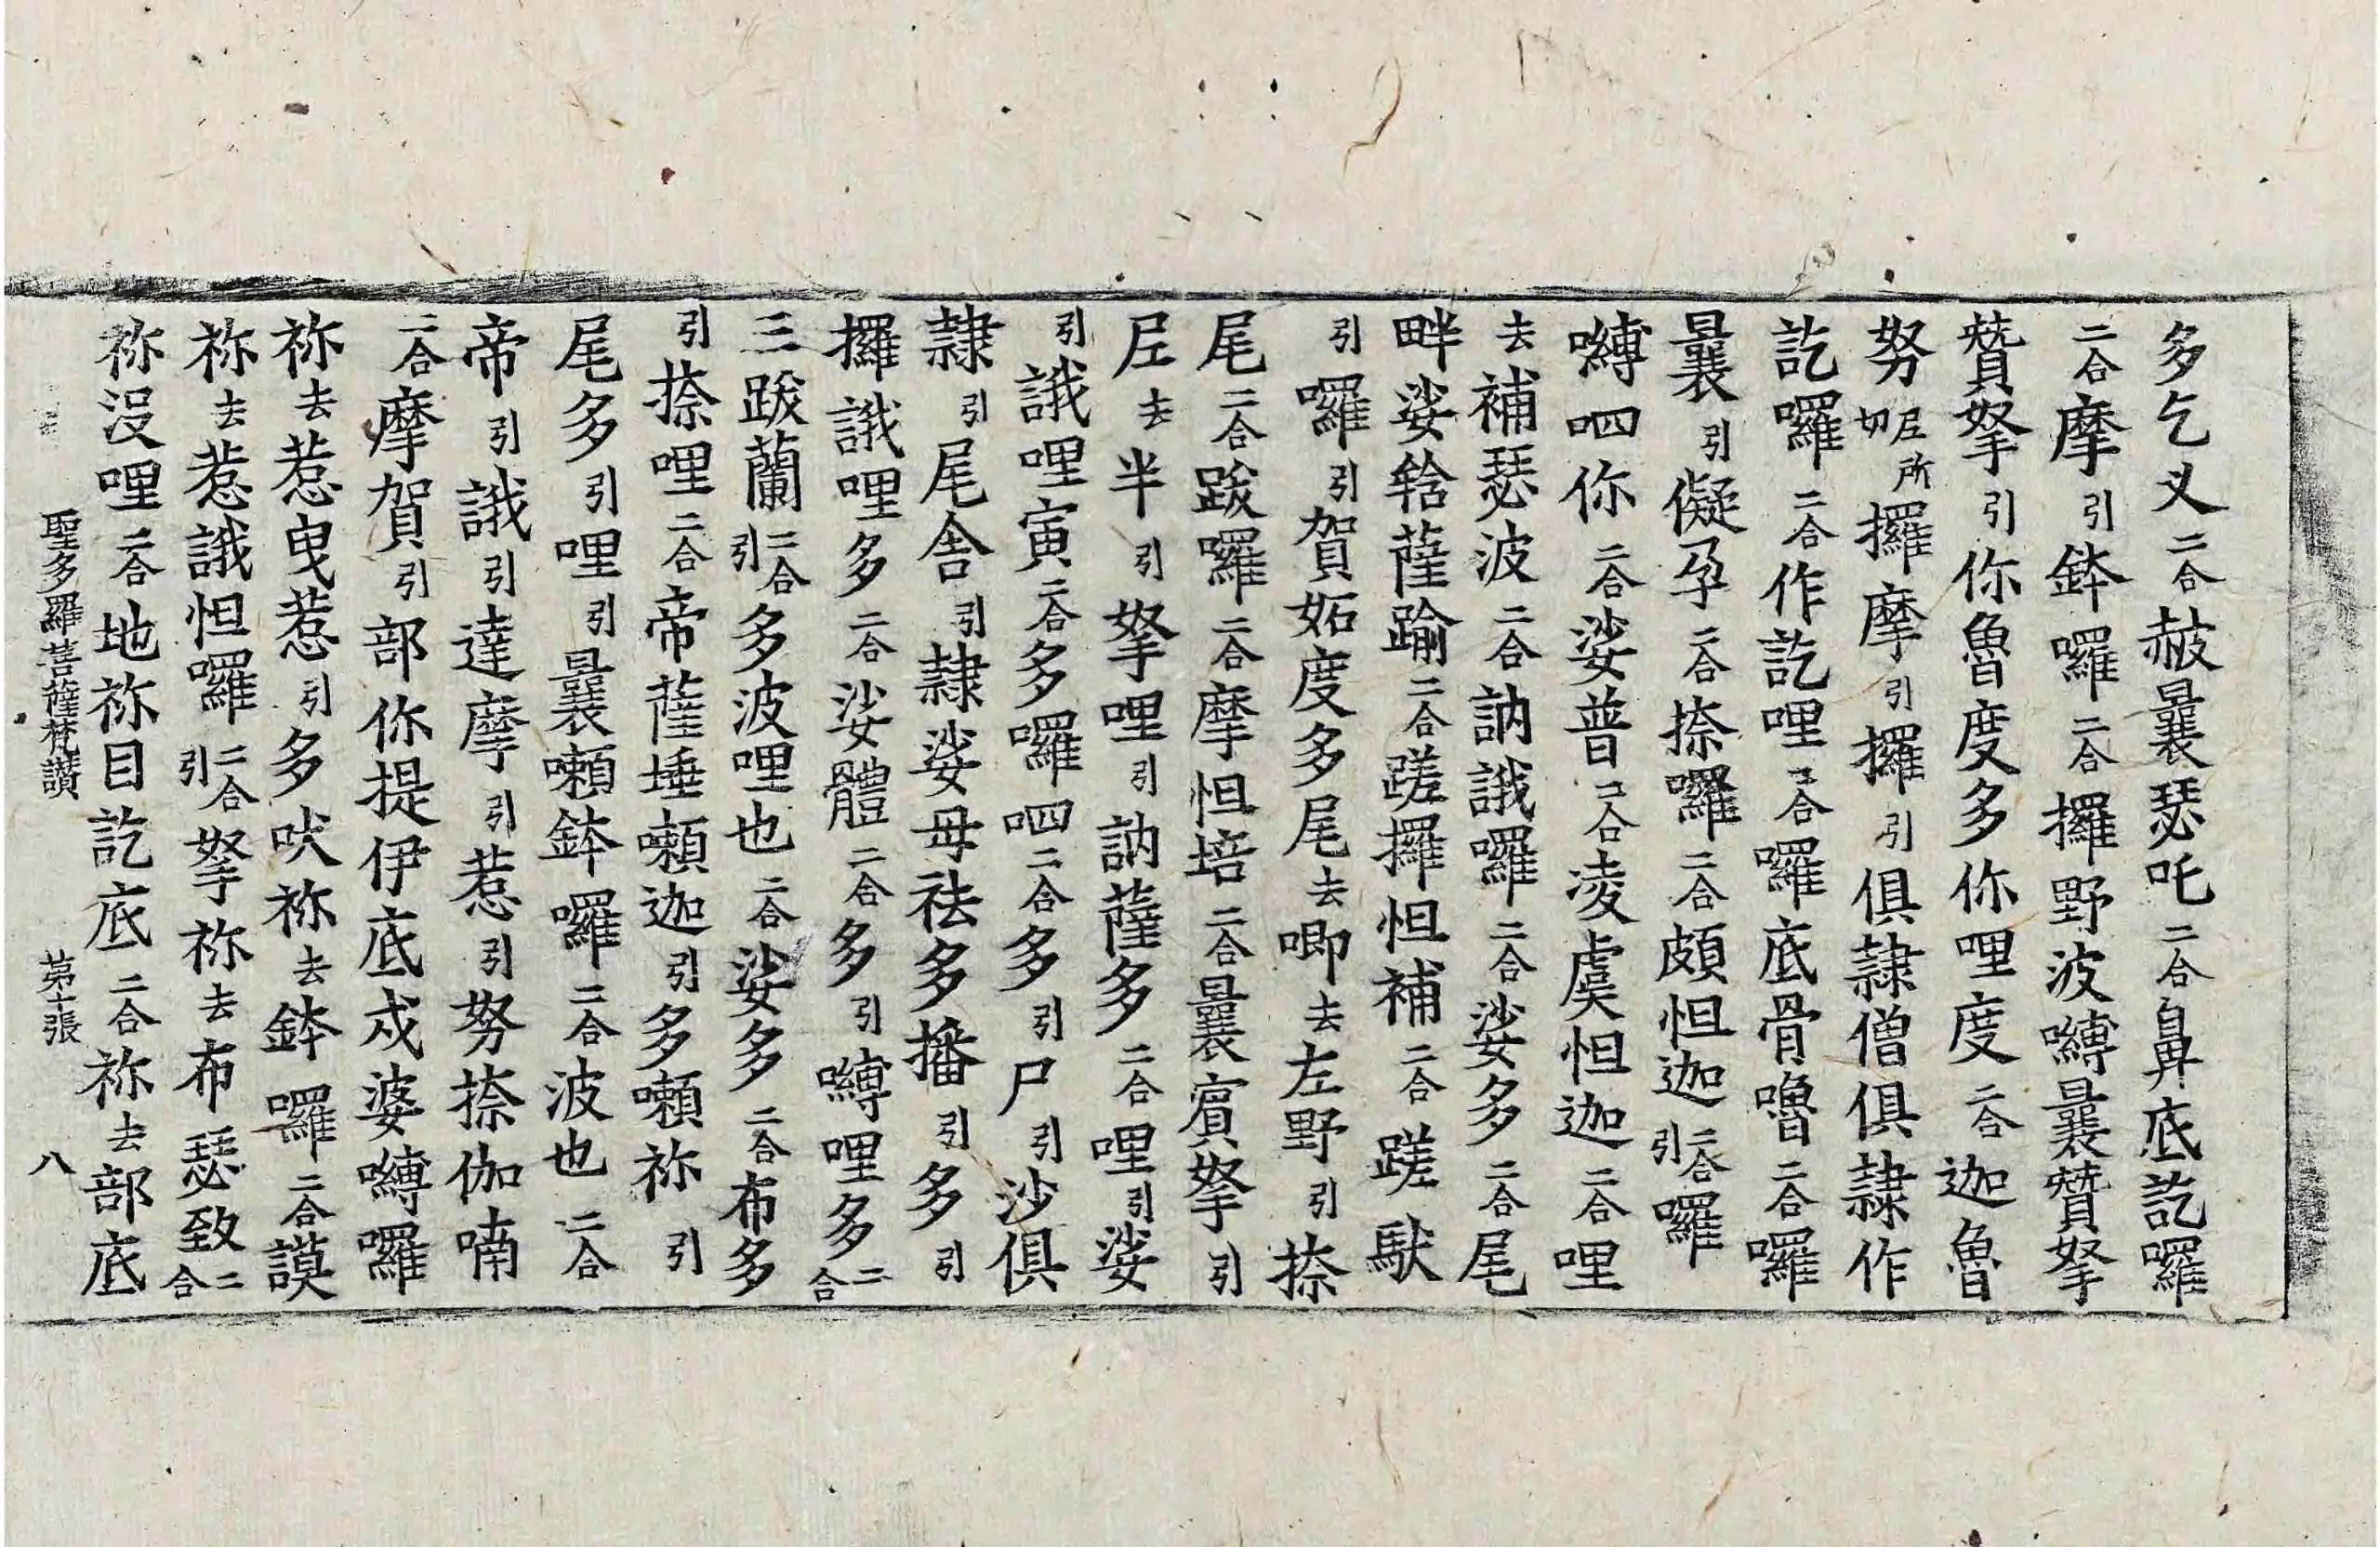 多乞叉二合赦曩瑟吒二合鼻底訖囉
二合摩引鉢囉二合攞野波嚩曩贊拏
贊拏引你魯度多你哩度二合迦魯
努尼所切攞摩引攞引俱隷僧俱隷作
訖囉二合作訖哩二合囉底骨嚕二合囉
曩引儗孕二合捺囉二合頗怛迦二合引囉
嚩呬你二合娑普二合凌虞怛迦二合哩
去補瑟波二合訥誐囉二合娑多二合尾
畔娑䩭薩踰二合蹉攞怛補二合蹉馱
引囉引賀妬度多尾去唧去左野引捺
尾二合跋囉二合摩怛培二合曩賓拏引
左去半引拏哩引訥薩多二合哩引娑
引誐哩寅二合多囉呬二合多引尸引沙俱
隷引尾舍引隷娑母祛多播引多引
攞誐哩多二合娑體二合多引嚩哩多二合
三跋蘭二合引多波哩也二合娑多二合布多
引捺哩二合帝薩埵嚬迦引多嚬祢引
尾多引哩引曩嚬鉢囉二合波也二合
帝引誐引達摩引惹引努捺伽喃
二合摩賀引部你提伊底戍婆嚩囉
祢去惹曳惹引多吠祢去鉢囉二合謨
祢去惹誐怛囉二合引拏祢去布瑟致二合
祢沒哩二合地祢目訖底二合祢去部底
聖多羅菩薩梵讚　第十張　八